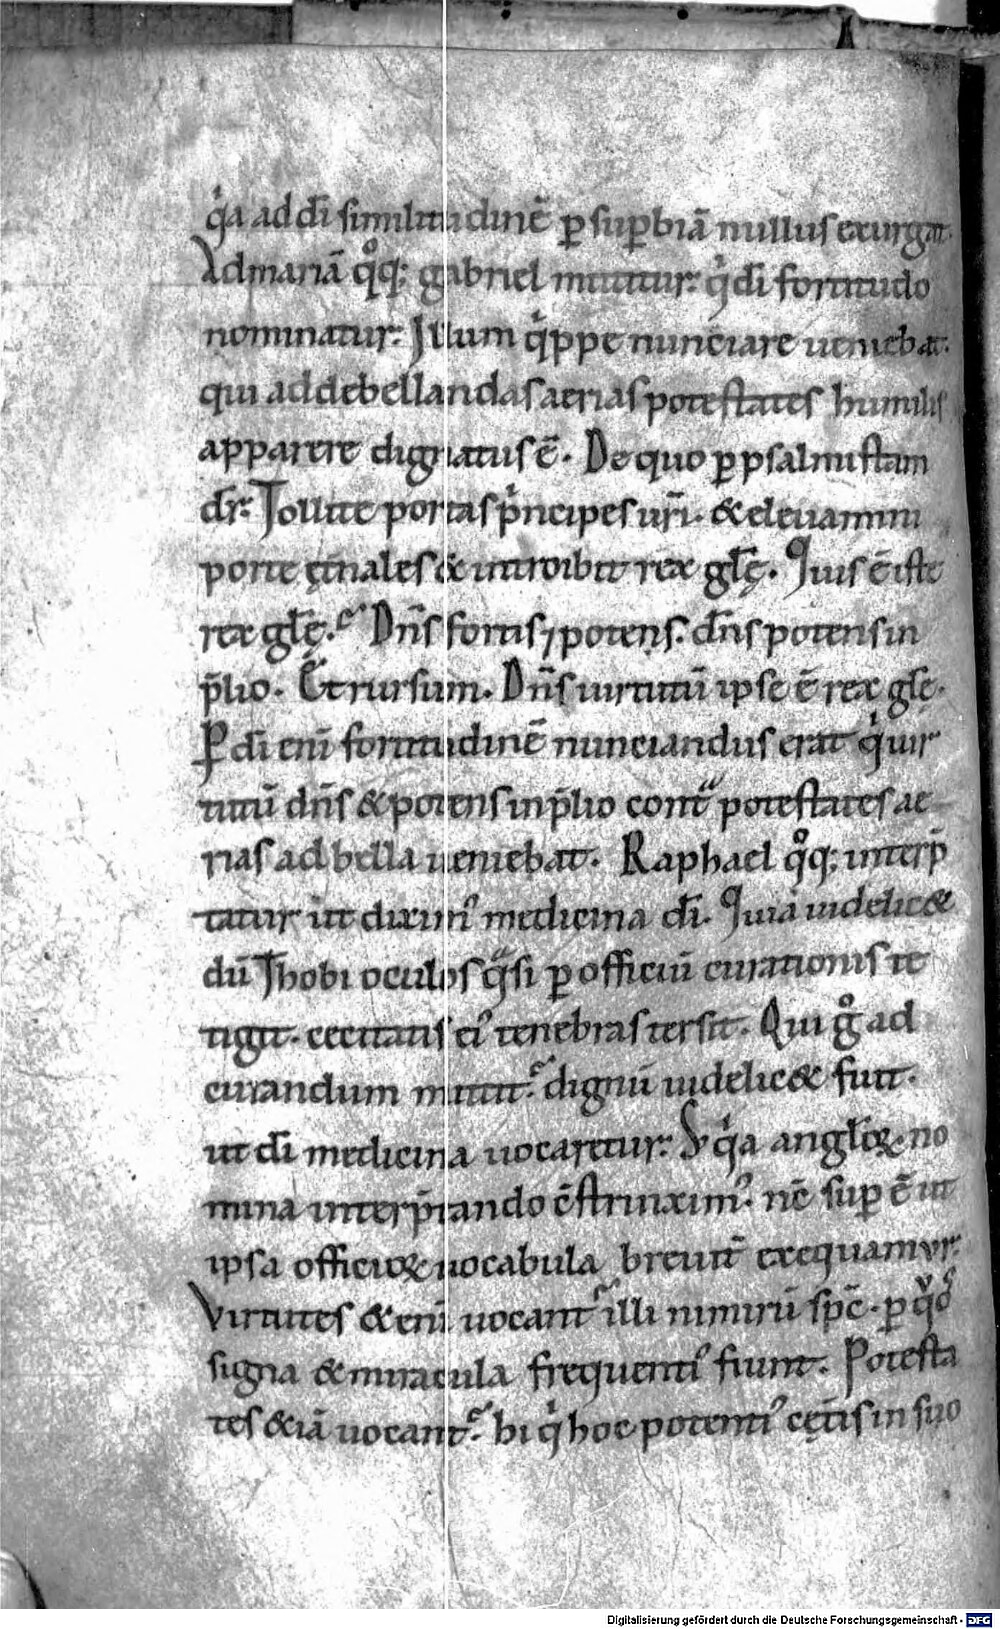 qͥa ad dī similitudinē ꝑ suꝑbiā nullus exurgat.
Ad mariā qͦq; gabriel mittitur: qͥ dī fortitudo
nominatur: Illum qͥppe nunciare ueniebat.
qui ad debellandas aerias potestates humilis
apparere dignatus ē. De quo ꝑ psalmistam
dr̄: Tollite portas pͥncipes ur̄i. & eleuamini
porte ęt̄nales & introibit rex gl̄ę. Quis ē iste
rex gl̄ę. Dn̄s fortis ⁊ potens. dn̄s potens in
p̄lio. Et rursum. Dn̄s uirtutū ipse ē rex gl̄ę.
P dī eni fortitudinē nunciandus erat qͥ uir
tutū dn̄s & potens in p̄lio contͣ potestates ae
rias ad bella ueniebat. Raphael qͦq; interp̄
tatur ut diximꝰ medicina dī. Quia uidelic&
dū Thobi oculos qͣsi ꝑ officiū curationis te
tigit. cecitatis eiꝰ tenebras tersit. Qui gͦ ad
curandum mittit᷑ dignū uidelic& fuit.
ut dī medicina uocaretur: S; qͥa angl̄oꝝ no
mina interp̄tando c̄strinximꝰ. nc̄ suꝑ ē ut
ipsa officioꝝ uocabula breuit̄ exequamur.
Virtutes & eni uocant᷑ illi nimirū sp̄c. ꝑ qͦs
signa & miracula frequentiꝰ fiunt. Potesta
tes & iā uocant᷑ hi qͥ hoc potentiꝰ cęt̄is in suo
Digitalisierung gefördert durch die Deutsche Forschungsgemeinschaft - DFG